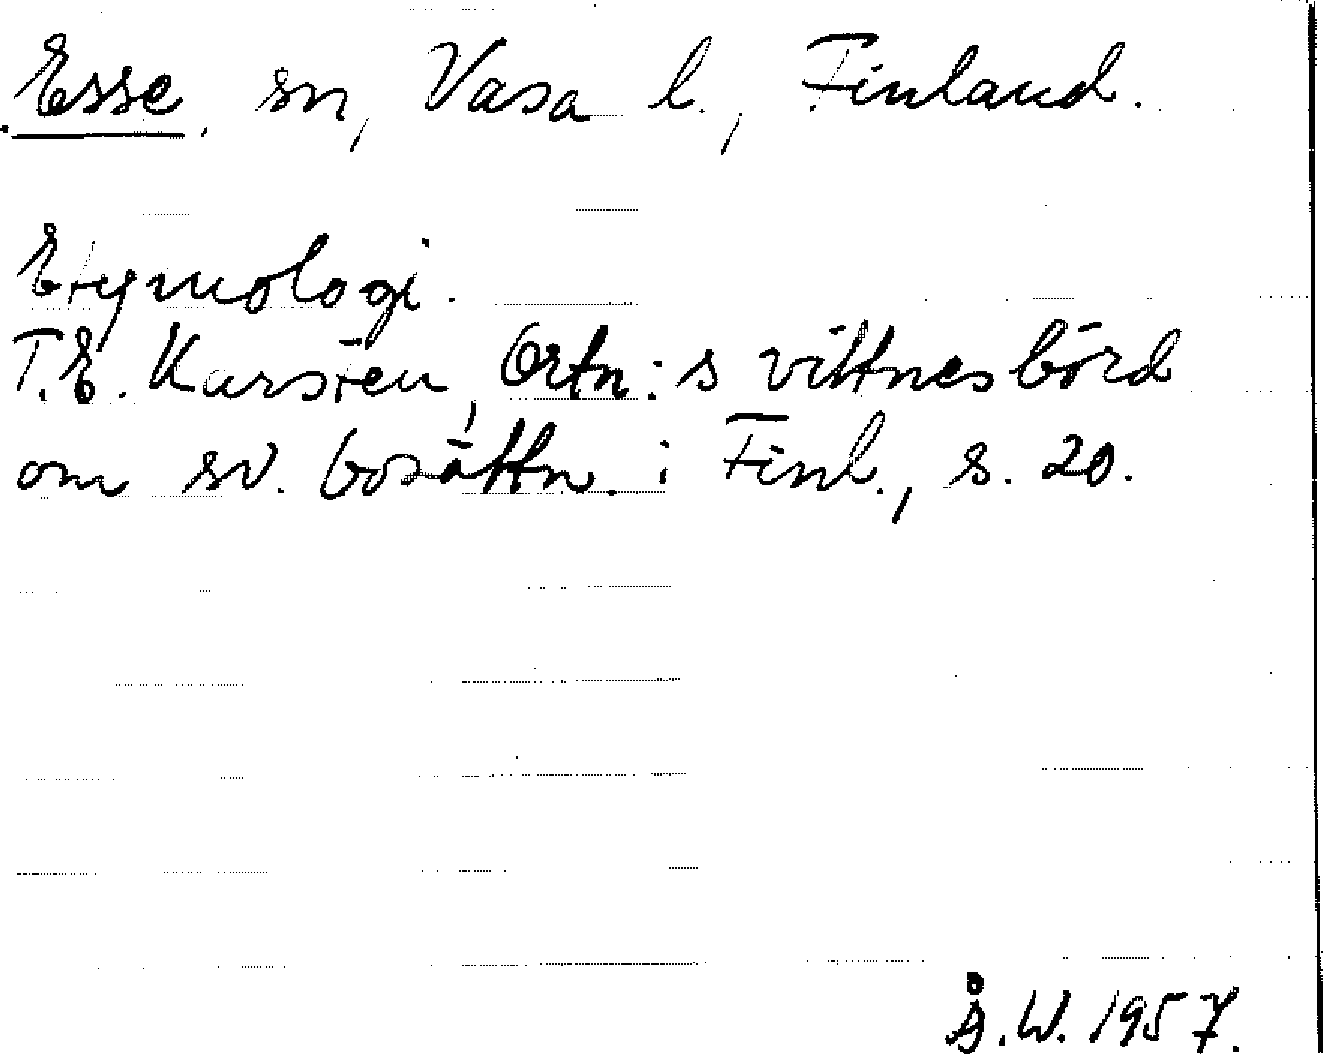 Esse, sn, Vasa l., Finland.
Etymologi.
T.E. Karsten, Ortn:s vittnesbörd
om sv. bosättn. i Finl., s. 20.
Å.W. 1957.